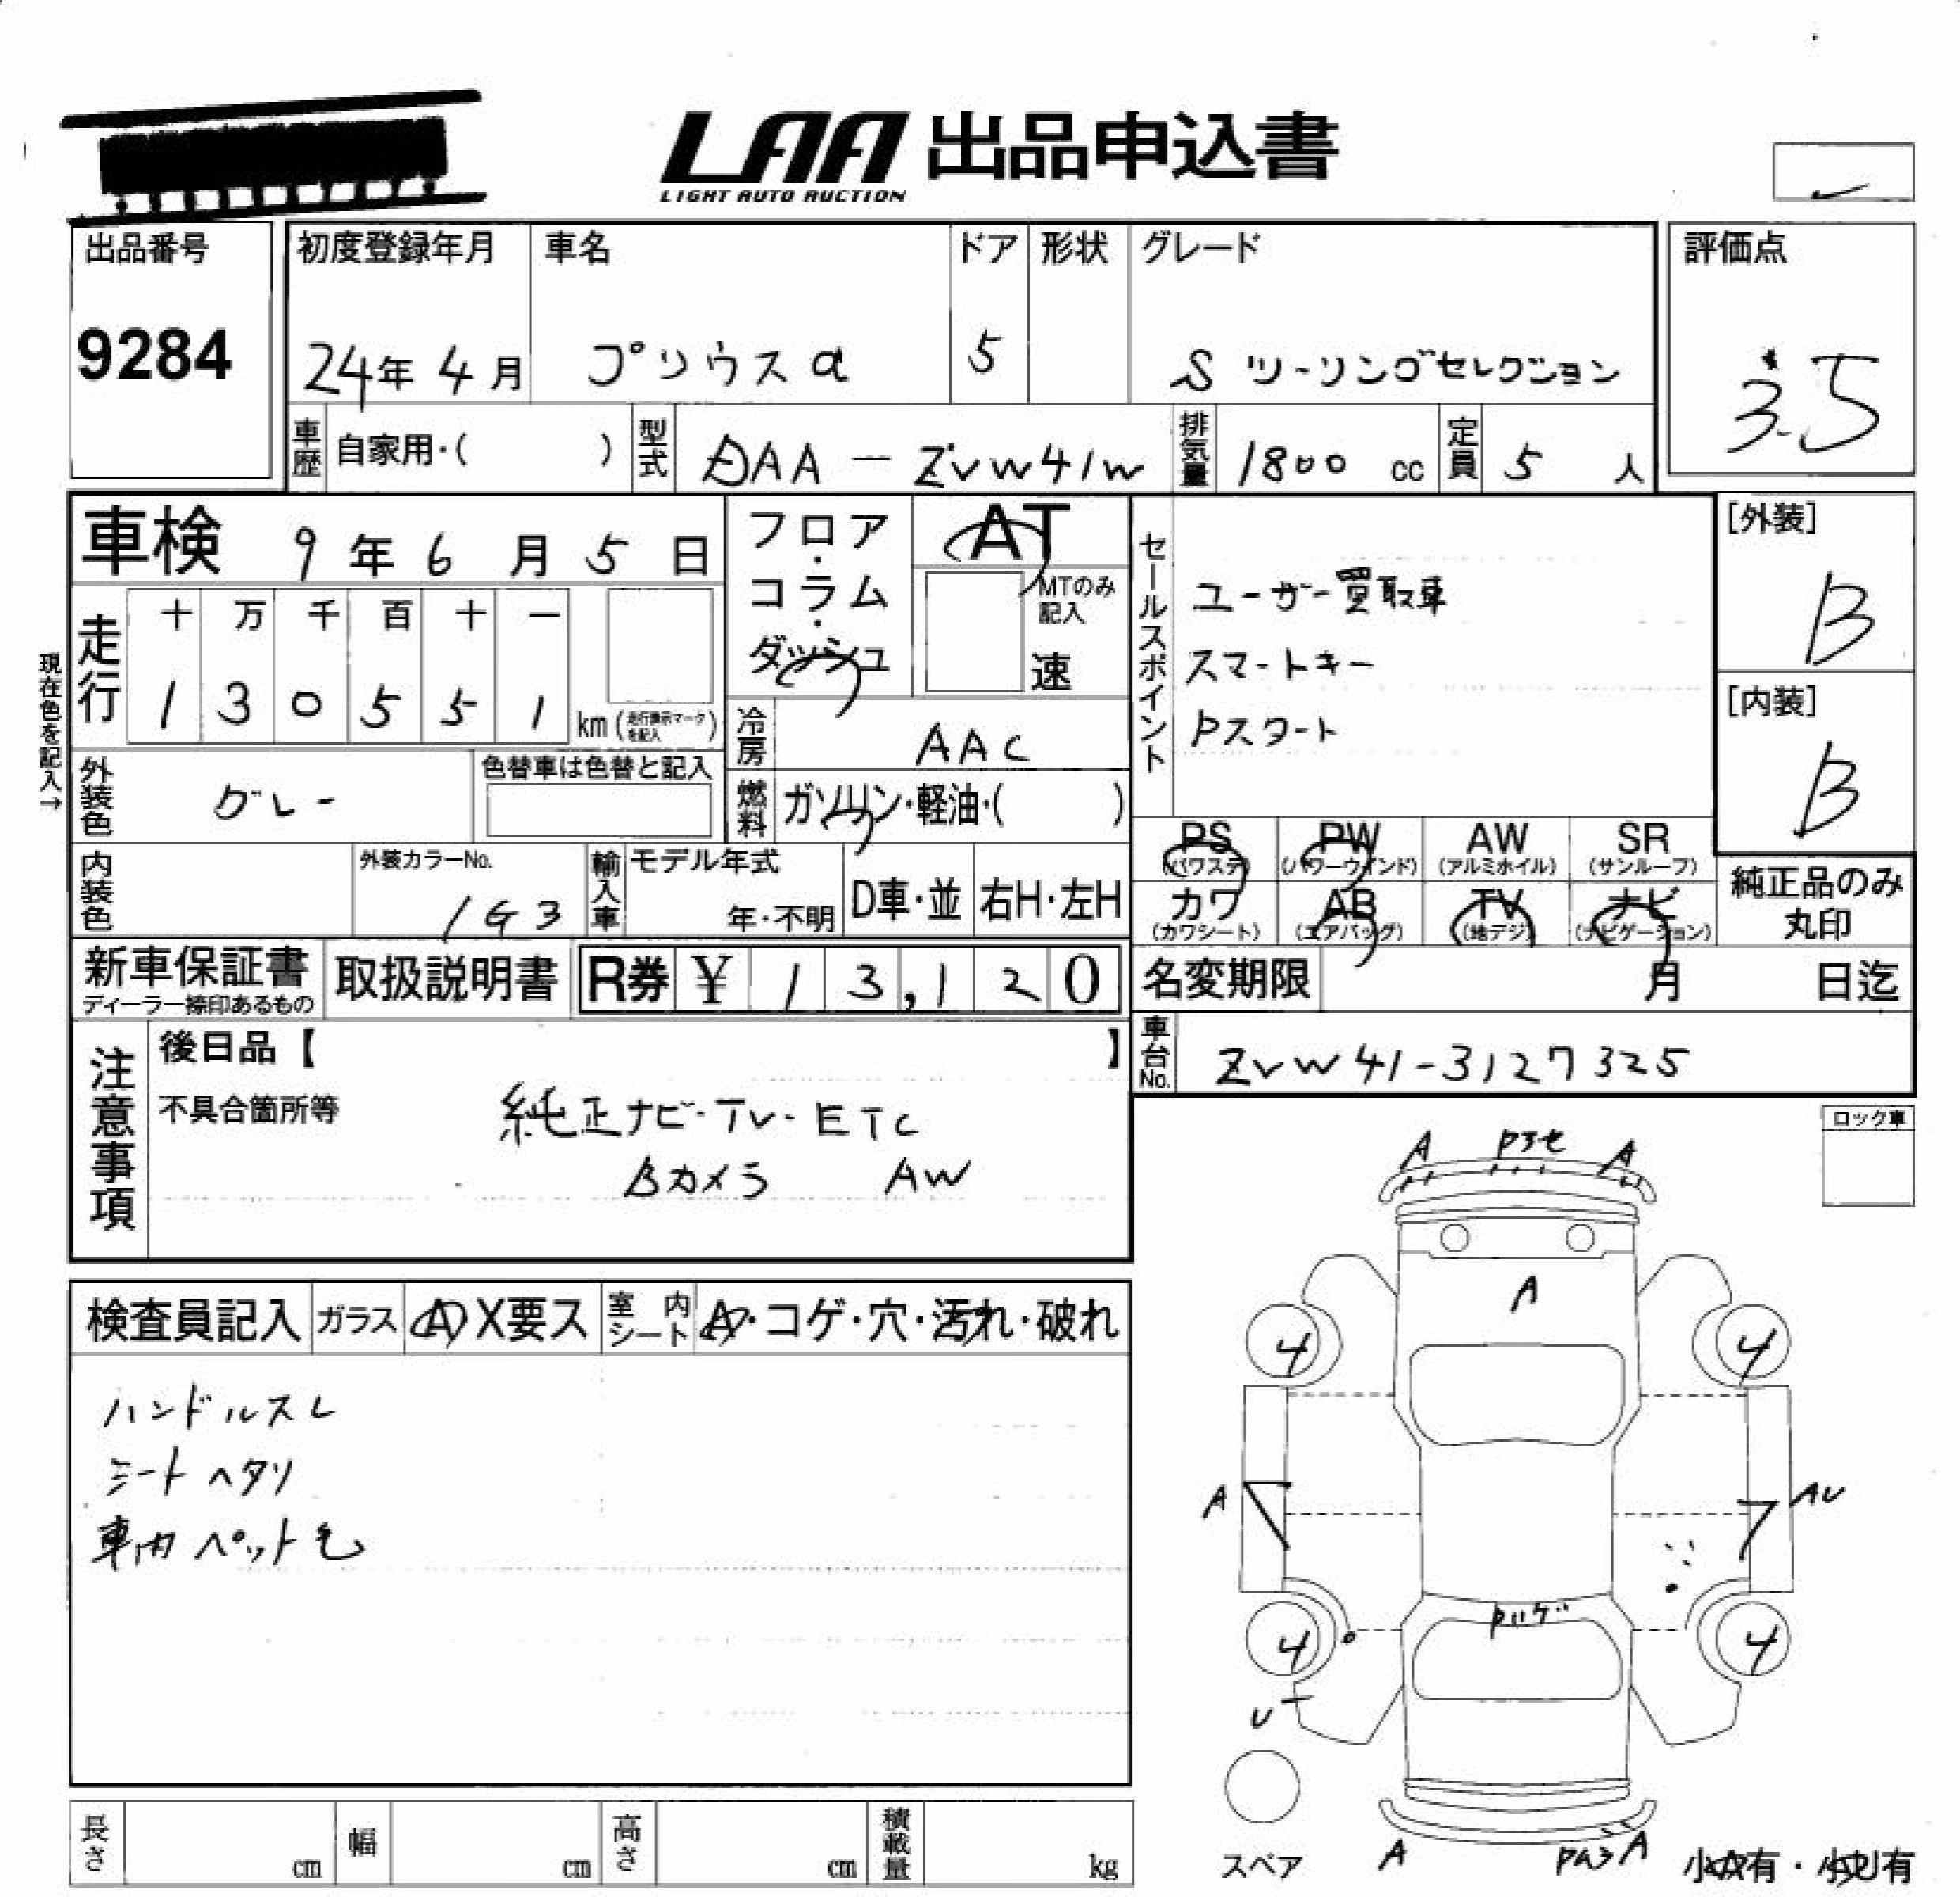 LAA 出品申込書
LIGHT AUTO AUCTION
出品番号
9284
初度登録年月
24年 4月
車名
プリウスα
ドア
5
形状
グレード
S ツーリングセレクション
評価点
3.5
車歴
自家用・( )
型式
DAA-ZVW41W
排気量
1800 cc
定員
5 人
車検 9年 6月 5日
フロア・コラム・ダッシュ
AT
MTのみ記入
速
セールスポイント
ユーザー買取車
スマートキー
Pスタート
[外装]
B
[内装]
B
現在色を記入→
走行
十 万 千 百 十 一
1 3 0 5 5 1
km (走行換示マークを記入)
冷房
AAC
外装色
グレー
色替車は色替と記入
燃料
ガソリン・軽油・( )
PS (パワステ)
PW (パワーウインド)
AW (アルミホイル)
SR (サンルーフ)
カワ (カワシート)
AB (エアバッグ)
TV (地デジ)
ナビ (ナビゲーション)
純正品のみ丸印
内装色
外装カラーNo.
1G3
輸入車
モデル年式
年・不明
D車・並
右H・左H
新車保証書
ディーラー捺印あるもの
取扱説明書
R券 ¥ 13,120
名変期限
月 日迄
車台No.
ZVW41-3127325
注意事項
後日品【 】
不具合箇所等
純正ナビ・TV・ETC
Bカメラ AW
ロック車
検査員記入
ガラス
A X要ス
室内シート
A・コゲ・穴・汚れ・破れ
ハンドルスレ
シートヘタリ
車内ペット毛
A
A
A
4
4
A
AU
4
4
U
スペア
A
A
小A有・小U有
長さ
cm
幅
cm
高さ
cm
積載量
kg